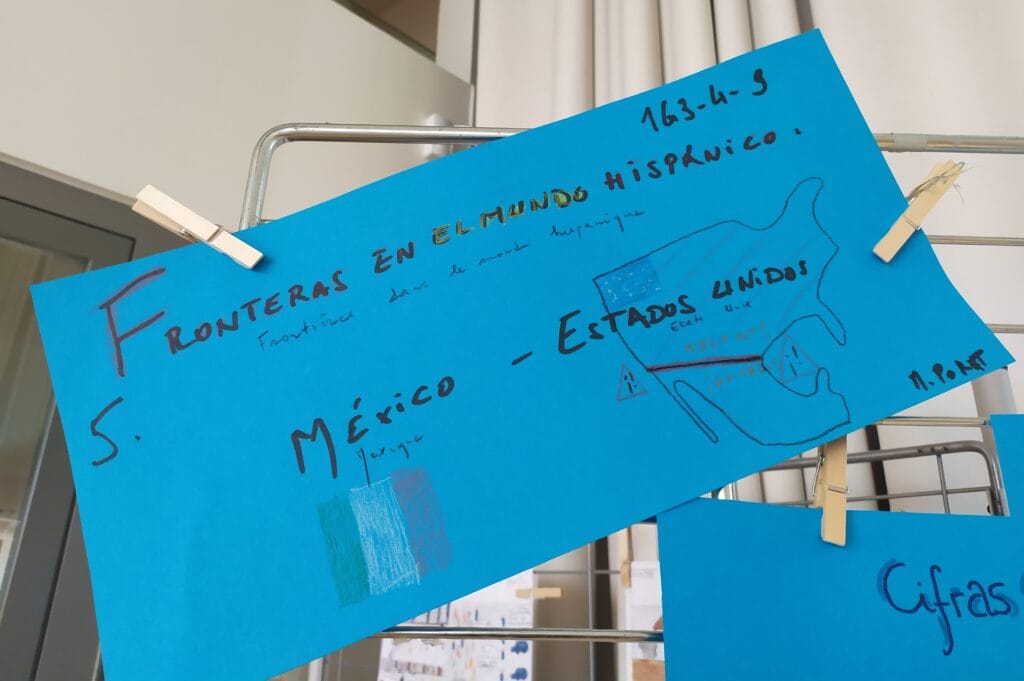 1G3-4-9
FRONTERAS EN EL MUNDO HISPÁNICO.
Frontières dans le monde hispanique
5.
MÉXICO - ESTADOS UNIDOS
Mexique
États-Unis
M. PONT
Cifras